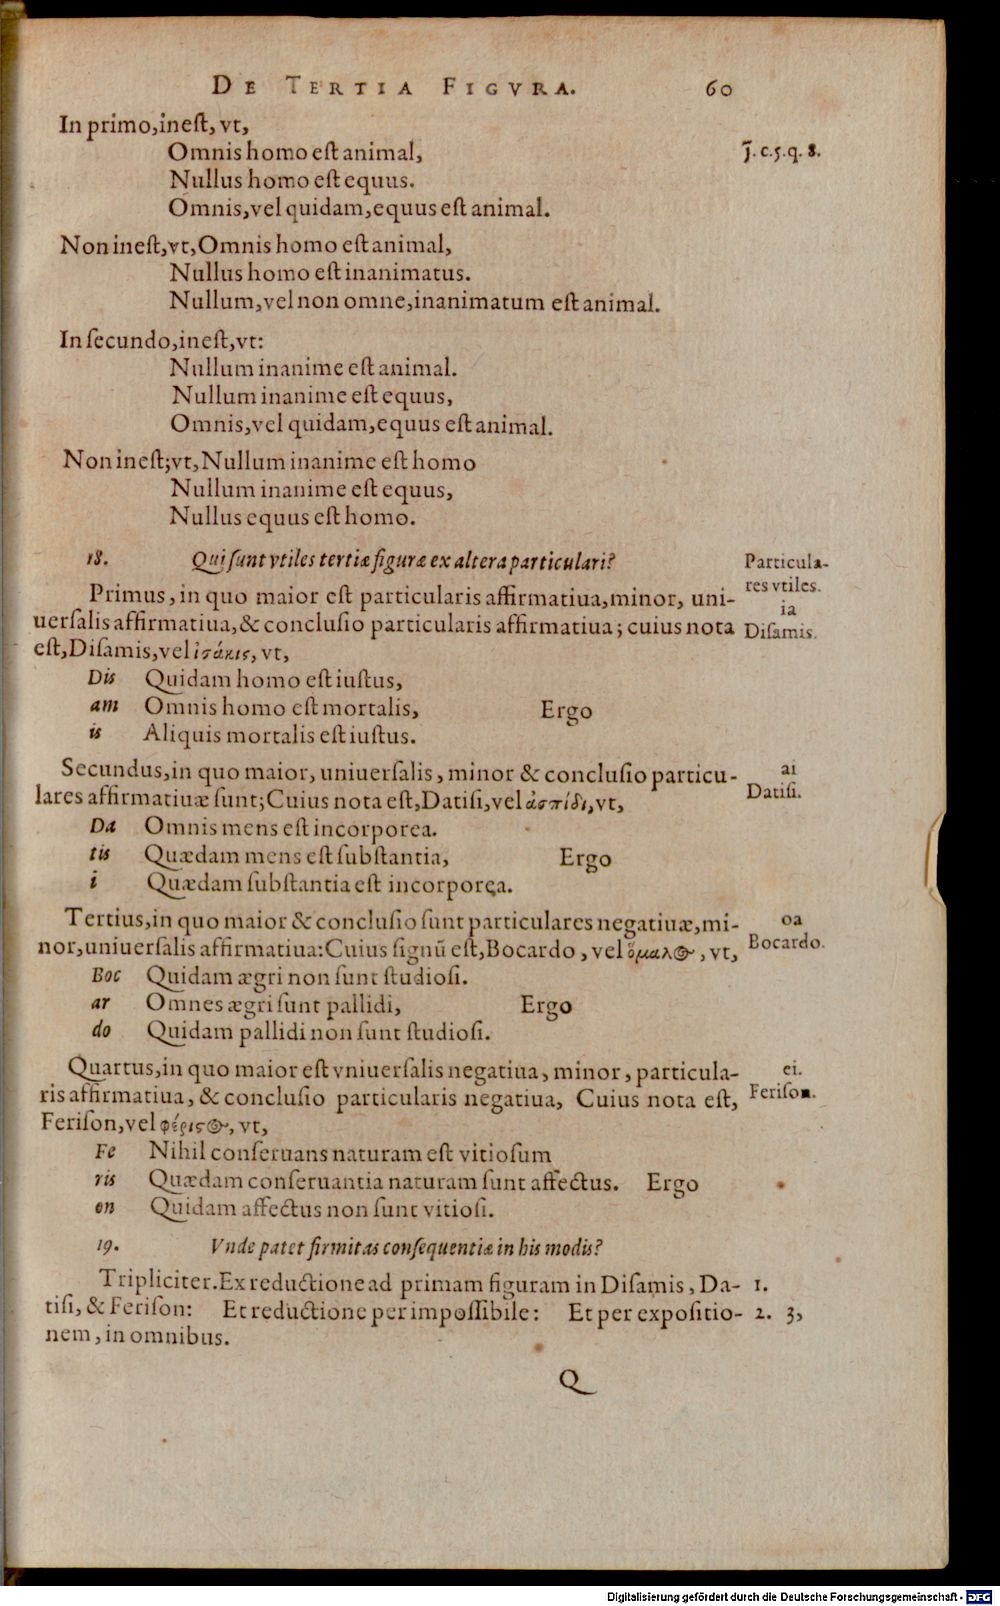 DE TERTIA FIGVRA. 60
In primo, ineſt, vt,
Omnis homo eſt animal, J. c. 5. q. 8.
Nullus homo eſt equus.
Omnis, vel quidam, equus eſt animal.
Non ineſt, vt, Omnis homo eſt animal,
Nullus homo eſt inanimatus.
Nullum, vel non omne, inanimatum eſt animal.
In ſecundo, ineſt, vt:
Nullum inanime eſt animal.
Nullum inanime eſt equus,
Omnis, vel quidam, equus eſt animal.
Non ineſt; vt, Nullum inanime eſt homo
Nullum inanime eſt equus,
Nullus equus eſt homo.
18. Qui ſunt vtiles tertiæ figuræ ex altera particulari? Particula-
res vtiles.
Primus, in quo maior eſt particularis affirmatiua, minor, uni-
ia
uerſalis affirmatiua, & concluſio particularis affirmatiua; cuius nota Diſamis.
eſt, Diſamis, vel ἰσάκις, vt,
Dis Quidam homo eſt iuſtus,
am Omnis homo eſt mortalis, Ergo
is Aliquis mortalis eſt iuſtus.
Secundus, in quo maior, uniuerſalis, minor & concluſio particu- ai
lares affirmatiuæ ſunt; Cuius nota eſt, Datiſi, vel ἀσπίδι, vt, Datiſi.
Da Omnis mens eſt incorporea.
tis Quædam mens eſt ſubſtantia, Ergo
i Quædam ſubſtantia eſt incorporea.
Tertius, in quo maior & concluſio ſunt particulares negatiuæ, mi- oa
nor, uniuerſalis affirmatiua: Cuius ſignū eſt, Bocardo, vel ὅμαλος, vt, Bocardo.
Boc Quidam ægri non ſunt ſtudioſi.
ar Omnes ægri ſunt pallidi, Ergo
do Quidam pallidi non ſunt ſtudioſi.
Quartus, in quo maior eſt vniuerſalis negatiua, minor, particula- ei.
ris affirmatiua, & concluſio particularis negatiua, Cuius nota eſt, Feriſon.
Feriſon, vel φέριστος, vt,
Fe Nihil conſeruans naturam eſt vitioſum
ris Quædam conſeruantia naturam ſunt affectus. Ergo
on Quidam affectus non ſunt vitioſi.
19. Vnde patet firmitas conſequentiæ in his modis?
Tripliciter. Ex reductione ad primam figuram in Diſamis, Da- 1.
tiſi, & Feriſon: Et reductione per impoſſibile: Et per expoſitio- 2. 3,
nem, in omnibus.
Q
Digitalisierung gefördert durch die Deutsche Forschungsgemeinschaft - DFG